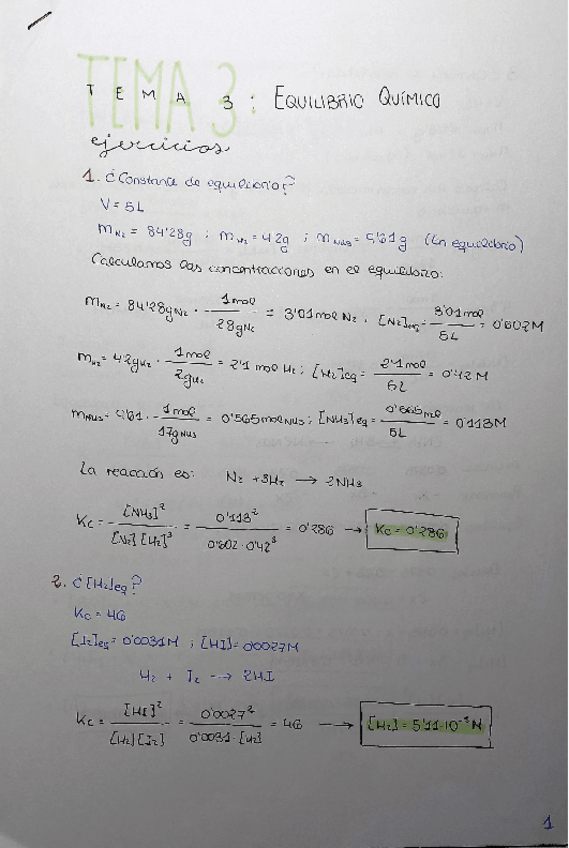 TEMA 3:
TEMA 3: EQUILIBRIO QUÍMICO
ejercicios
1. ¿Constante de equilibrio?
V = 5L
m N₂ = 84'28g ; m H₂ = 4'2g ; m NH₃ = 9'61g (En equilibrio)
Calculamos las concentraciones en el equilibrio:
m N₂ = 84'28g N₂ · 1mol / 28g N₂ = 3'01 mol N₂ . [N₂]eq = 3'01 mol / 5L = 0'602 M
m H₂ = 4'2g H₂ · 1mol / 2g H₂ = 2'1 mol H₂ ; [H₂]eq = 2'1 mol / 5L = 0'42 M
m NH₃ = 9'61 · 1mol / 17g NH₃ = 0'565 mol NH₃ ; [NH₃]eq = 0'565 mol / 5L = 0'113 M
La reacción es: N₂ + 3H₂ → 2NH₃
Kc = [NH₃]² / [N₂][H₂]³ = 0'113² / 0'602 · 0'42³ = 0'286 → Kc = 0'286
2. ¿[H₂]eq?
Kc = 46
[I₂]eq = 0'0031M ; [HI] = 0'0027M
H₂ + I₂ --→ 2HI
Kc = [HI]² / [H₂][I₂] = 0'0027² / 0'0031 · [H₂] = 46 → [H₂] = 5'11·10⁻⁵ M
1